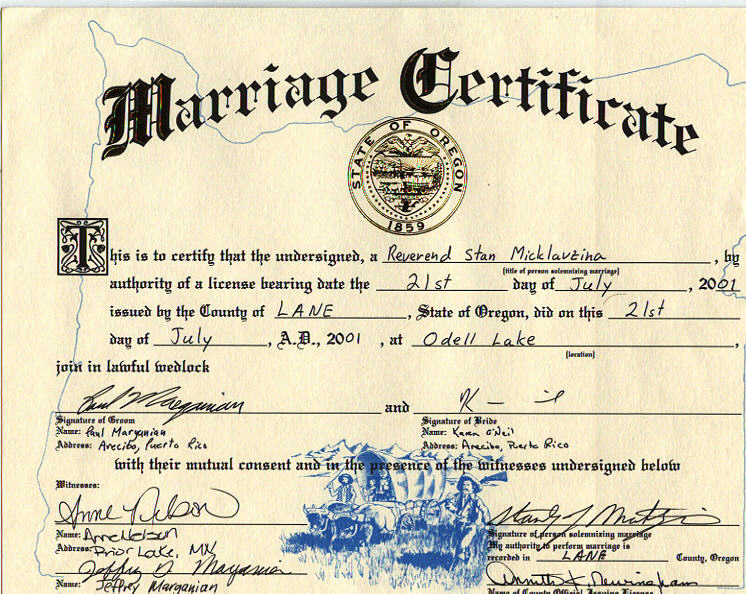 Marriage Certificate
STATE OF OREGON
1859
This is to certify that the undersigned, a Reverend Stan Micklavzina, by
(title of person solemnizing marriage)
authority of a license bearing date the 21st day of July, 2001
issued by the County of LANE, State of Oregon, did on this 21st
day of July, A.D., 2001, at Odell Lake,
(location)
join in lawful wedlock
Paul Marganian and
Signature of Groom Signature of Bride
Name: Paul Marganian Name: Karen O'Neil
Address: Arecibo, Puerto Rico Address: Arecibo, Puerto Rico
with their mutual consent and in the presence of the witnesses undersigned below
Witnesses:
Anne Nelson
Name: Anne Nelson Signature of person solemnizing marriage
Address: Prior Lake, MN My authority to perform marriage is
recorded in LANE County, Oregon
Jeffrey D Marganian
Name: Jeffrey Marganian Name of County Official Issuing License